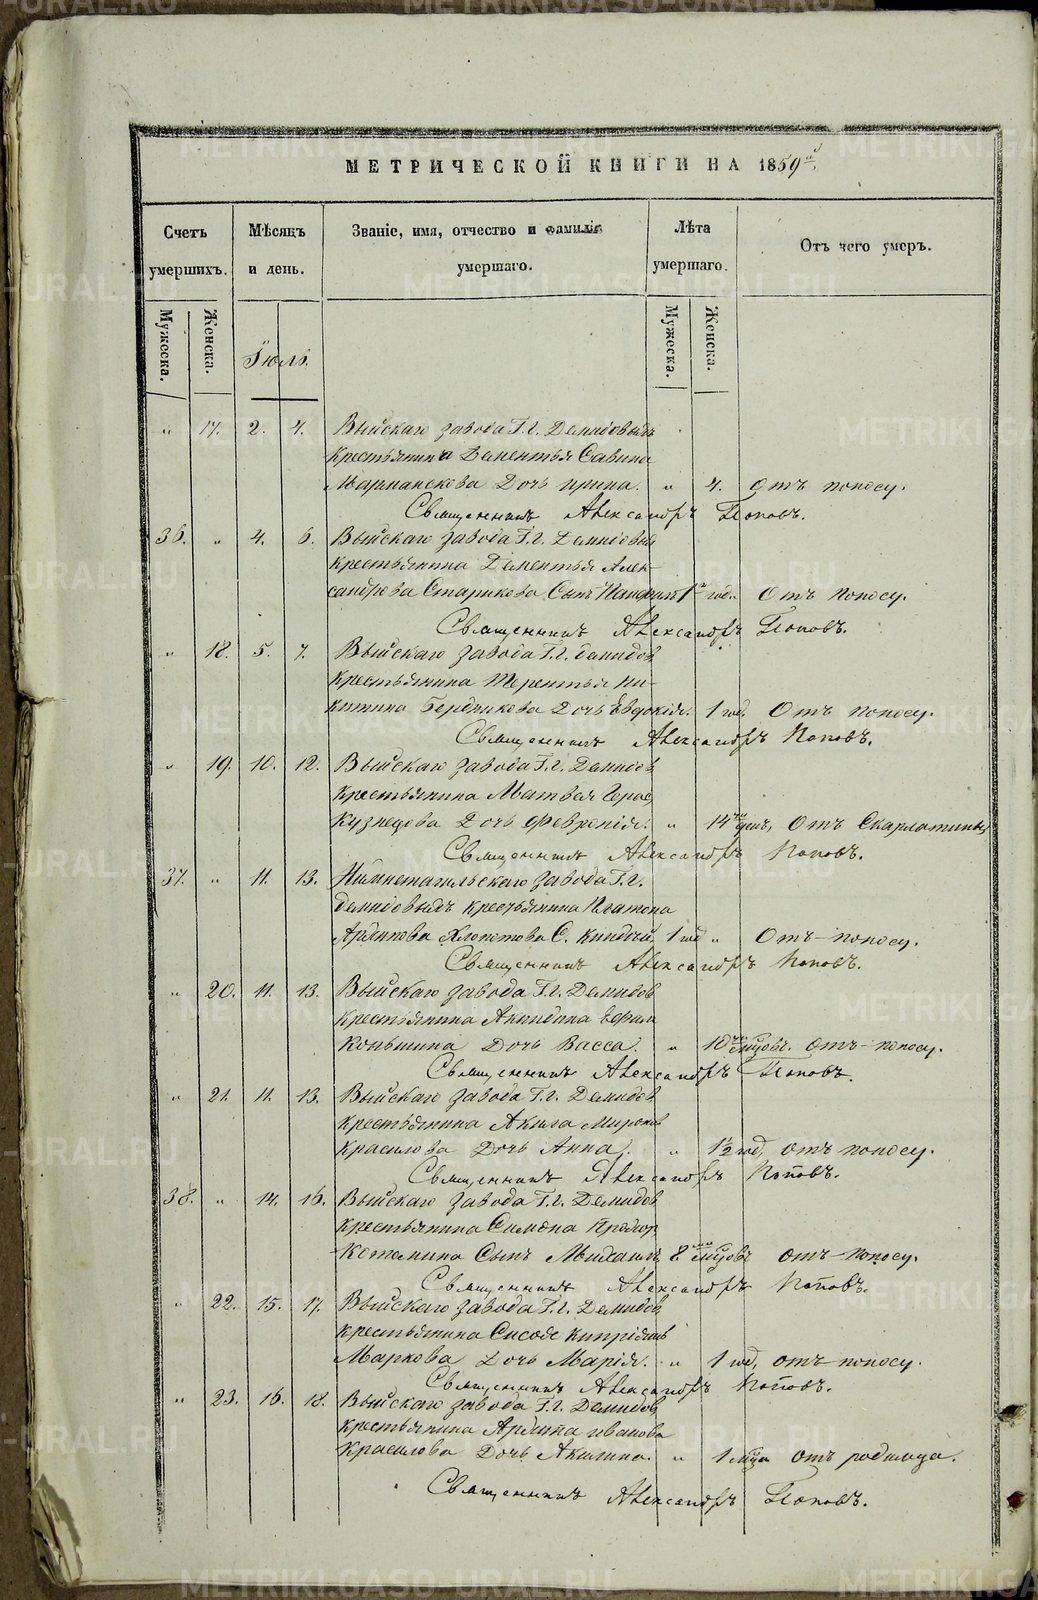 МЕТРИЧЕСКОЙ КНИГИ НА 1859й
Счетъ умершихъ.
Мѣсяцъ и день.
Званіе, имя, отчество и фамилія умершаго.
Лѣта умершаго.
Отъ чего умеръ.
Мужеска. Женска.
Іюль.
Мужеска. Женска.
" 17. 2. 4. Выйскаго завода Г.г. Демидовыхъ
крестьянина Дементья Савина
дочь Ирина. " 4. отъ поносу.
Священникъ Александръ Поповъ.
36. " 4. 6. Выйскаго завода Г.г. Демидовых
крестьянина Дементья Алек-
сандрова Старикова Сынъ 1 год. Отъ поносу.
Священникъ Александръ Поповъ.
" 18. 5. 7. Выйскаго завода Г.г. Демидов
крестьянина Терентья Ни-
китина Бердникова Дочь Евдокія. 1 год. Отъ поносу.
Священникъ Александръ Поповъ.
" 19. 10. 12. Выйскаго завода Г.г. Демидов
крестьянина Матвея Герас
Кузнецова Дочь Февронія. " 14 ден. Отъ Скарлатины
Священникъ Александръ Поповъ.
37. " 11. 13. Нижнетагильскаго завода Г.г.
Демидовыхъ крестьянина Платона
Хлопотова С. 1 год " Отъ поносу.
Священникъ Александръ Поповъ.
" 20. 11. 13. Выйскаго завода Г.г. Демидов
крестьянина Акиндина Ефим
Коньшина Дочь Васса. " 10 мцовъ. отъ поносу.
Священникъ Александръ Поповъ.
" 21. 11. 13. Выйскаго завода Г.г. Демидов
крестьянина Акила Миронов
Красилова Дочь Анна. " 1½ год, отъ поносу.
Священникъ Александръ Поповъ.
38. " 14. 16. Выйскаго завода Г.г. Демидов
крестьянина Симеона
Сынъ Михаилъ 8 мцовъ отъ поносу.
Священникъ Александръ Поповъ.
" 22. 15. 17. Выйскаго завода Г.г. Демидов
крестьянина Сисоя Кипріянов
Маркова Дочь Марія. " 1 год, отъ поносу.
Священникъ Александръ Поповъ.
" 23. 16. 18. Выйскаго завода Г.г. Демидов
крестьянина Архипа Иванова
Красилова Дочь Акилина. " 1 мца отъ родимца.
Священникъ Александръ Поповъ.
METRIKI.GASO-URAL.RU